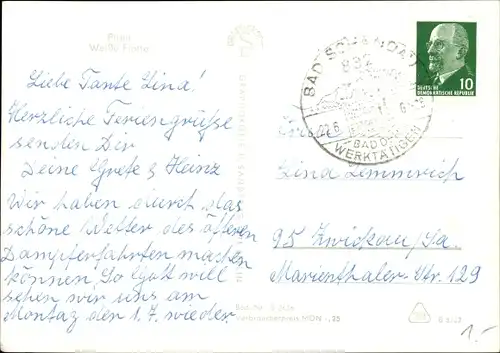 Pirna
Weiße Flotte
Liebe Tante Lina!
Herzliche Feriengrüße
senden Dir
Deine Grete & Heinz
Wir haben durch das
schöne Wetter des öfteren
Dampferfahrten machen
können. So Gott will
sehen wir uns am
Montag den 1.7. wieder.
BAD SCHANDAU
832
22.6.
BAD DER
WERKTÄTIGEN
DEUTSCHE
DEMOKRATISCHE REPUBLIK
10
Frau
Lina Lemmrich
95 Zwickau/Sa.
Marienthaler-Str. 129
1.-